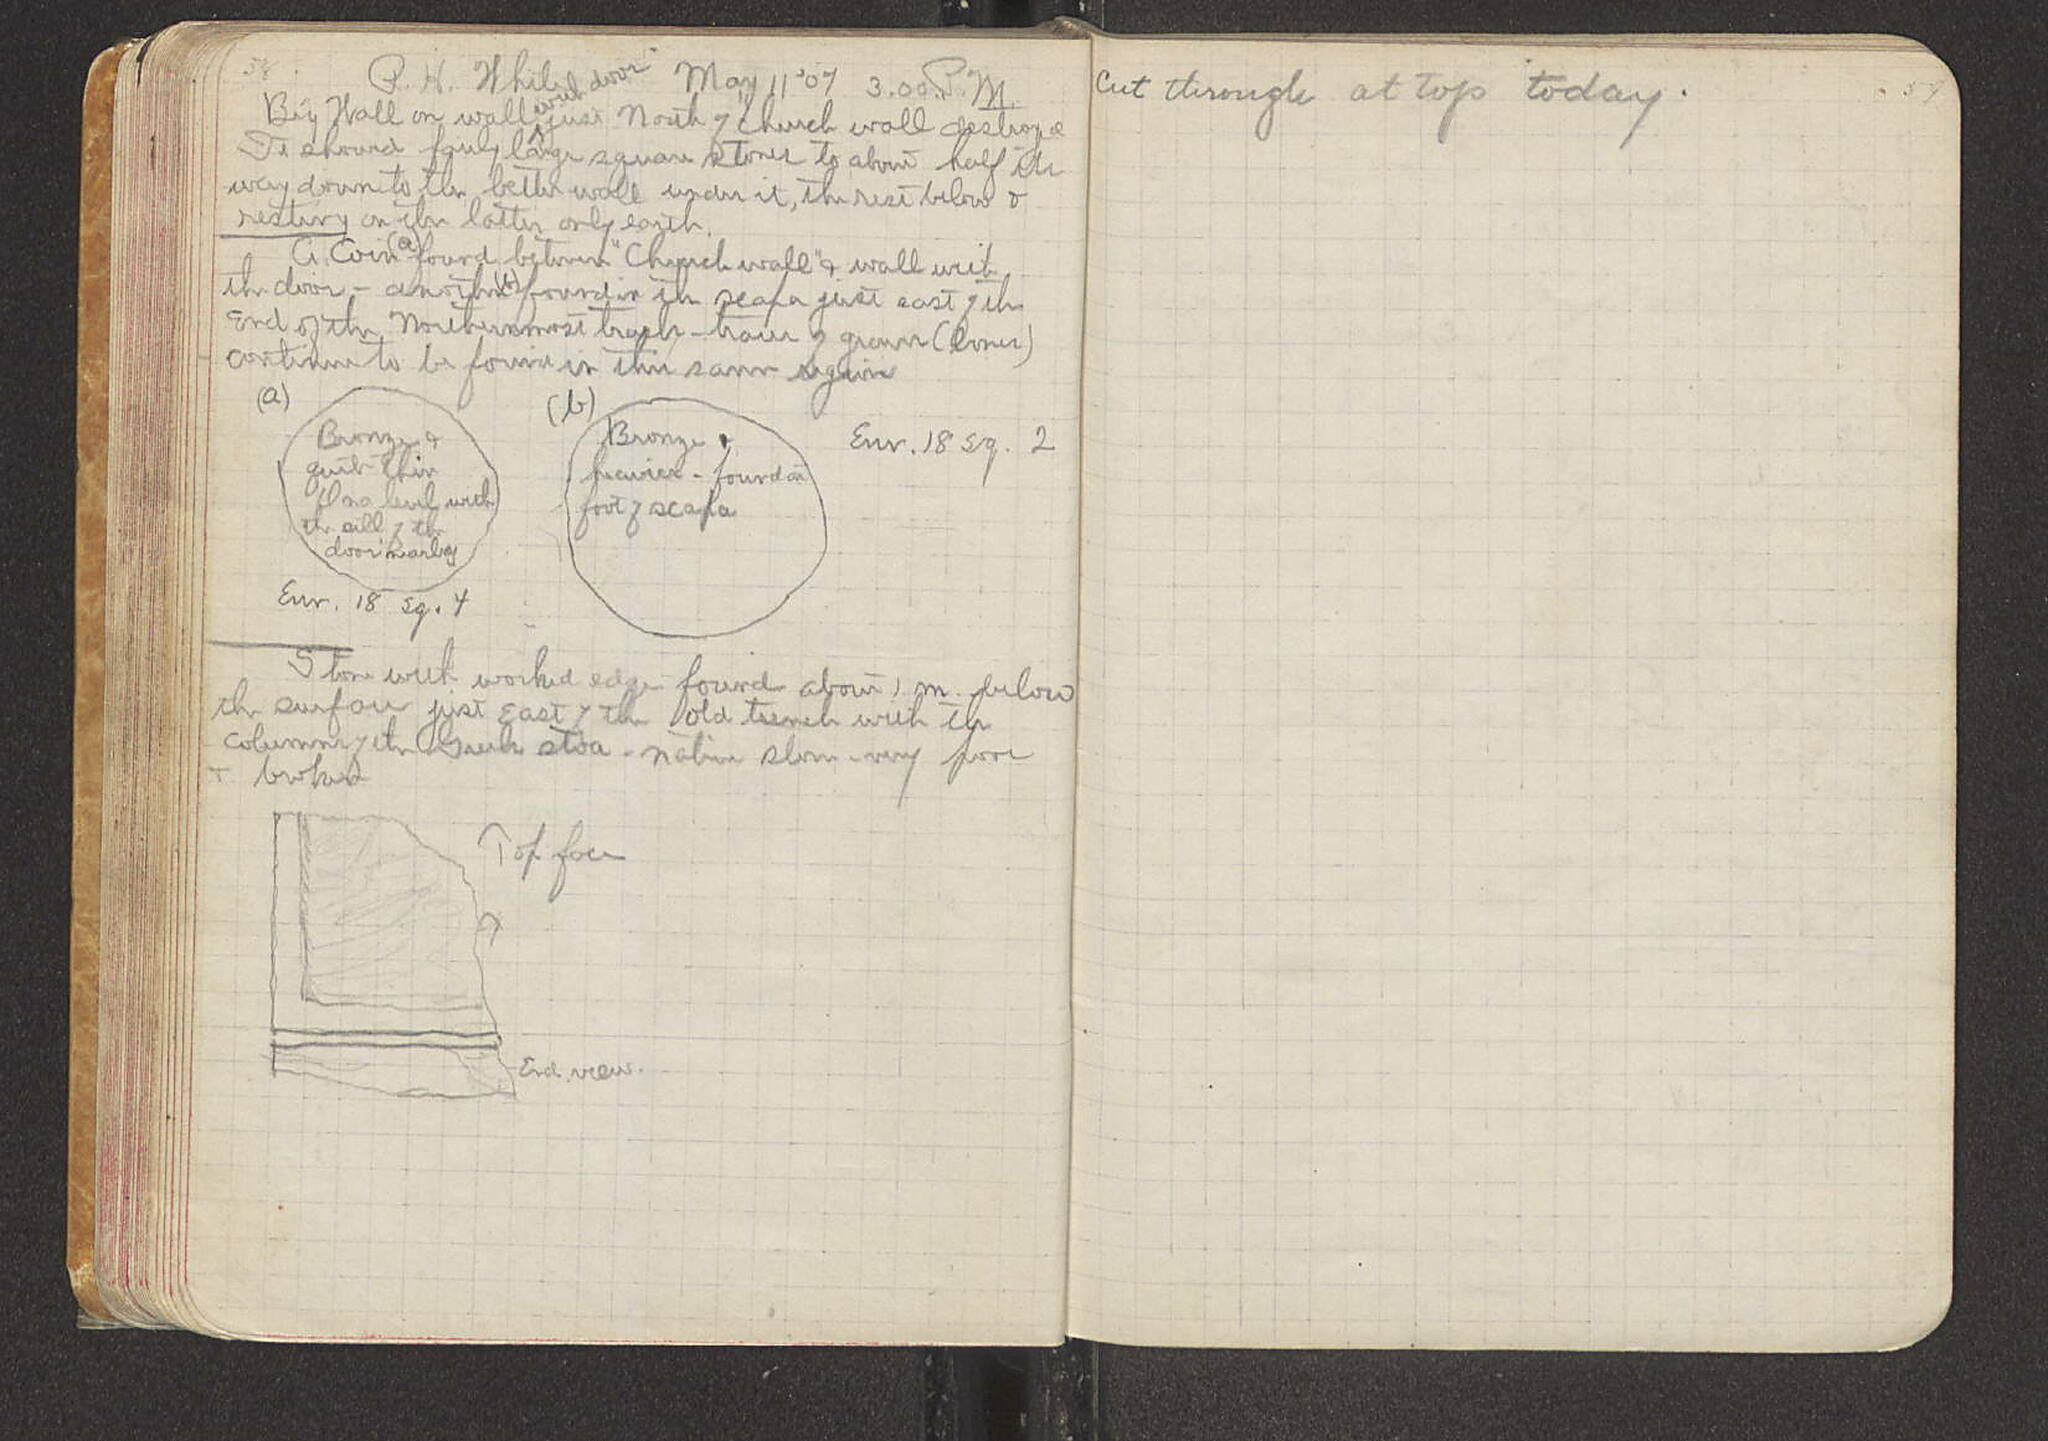 58
P. H. Whila May 11 '07 3.00 P.M.
with door
Big Wall on wall just North of "Church wall destroyed
It showed fairly large square stones to about half its
way down to the better wall under it, the rest below &
resting on the latter only earth.
A. Coin (a) found between "Church wall" & wall with
the door - another (b) found in the scapa just east of the
End of the Northernmost trench - traces of graves (bones)
continue to be found in this same region
(a)
Bronze &
quite thin
On a level with
the sill of the
door nearby
Env. 18 sq. 4
(b)
Bronze &
heavier - found at
foot of scapa
Env. 18 sq. 2
Stone with worked edge found about 1 m. below
the surface just East of the old trench with the
columns of the Greek stoa - native stone - very poor
+ broken
Top face
End view.
59
Cut through at top today.